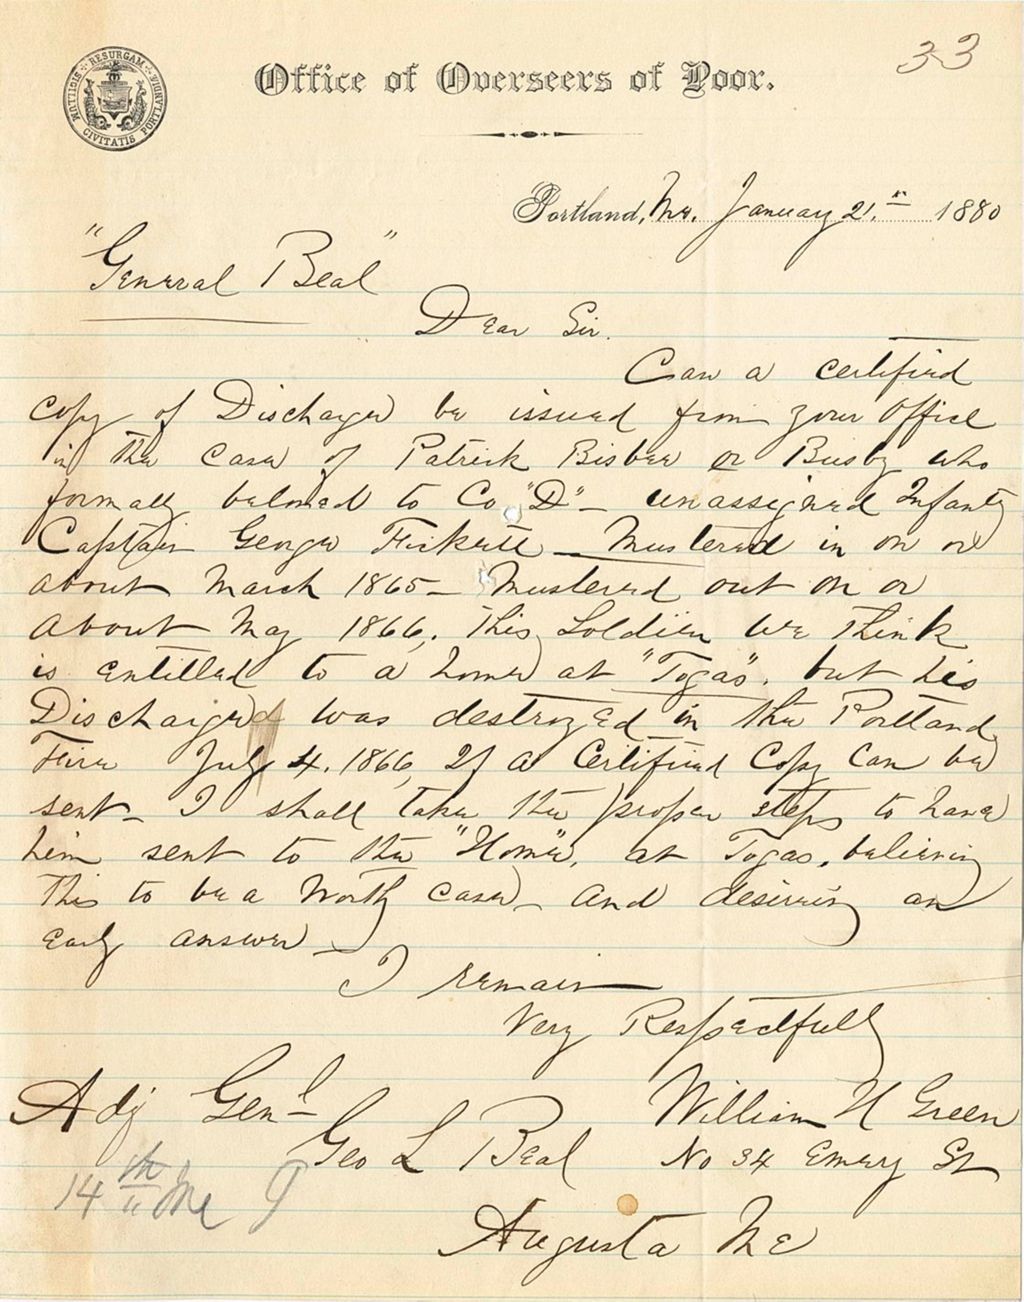 33
RESURGAM
SIGILLUM CIVITATIS PORTLANDIAE
Office of Overseers of Poor.
Portland, Me. January 21.st 1880
"General Beal"
Dear Sir.
Can a certified
copy of Discharge be issued from your Office
in the case of Patrick Bisbee or Busby who
formally beloned to Co "D" – unassigned Infanty
Captain George Fickett – Mustered in on or
about March 1865 – Mustered out on or
about May 1866. This Soldier we think
is entitled to a home at "Togas". but his
Discharged was destroyed in the Portland
Fire July 4. 1866, If a Certified Copy Can be
sent – I shall take the proper steps to have
him sent to the "Home", at Togas, believing
this to be a Worthy case – and desireing an
early answer –
I remain
Very Respectfully
William H Green
No 34 Emery St
Adj Genl
Geo L Beal
Augusta Me
14th Me